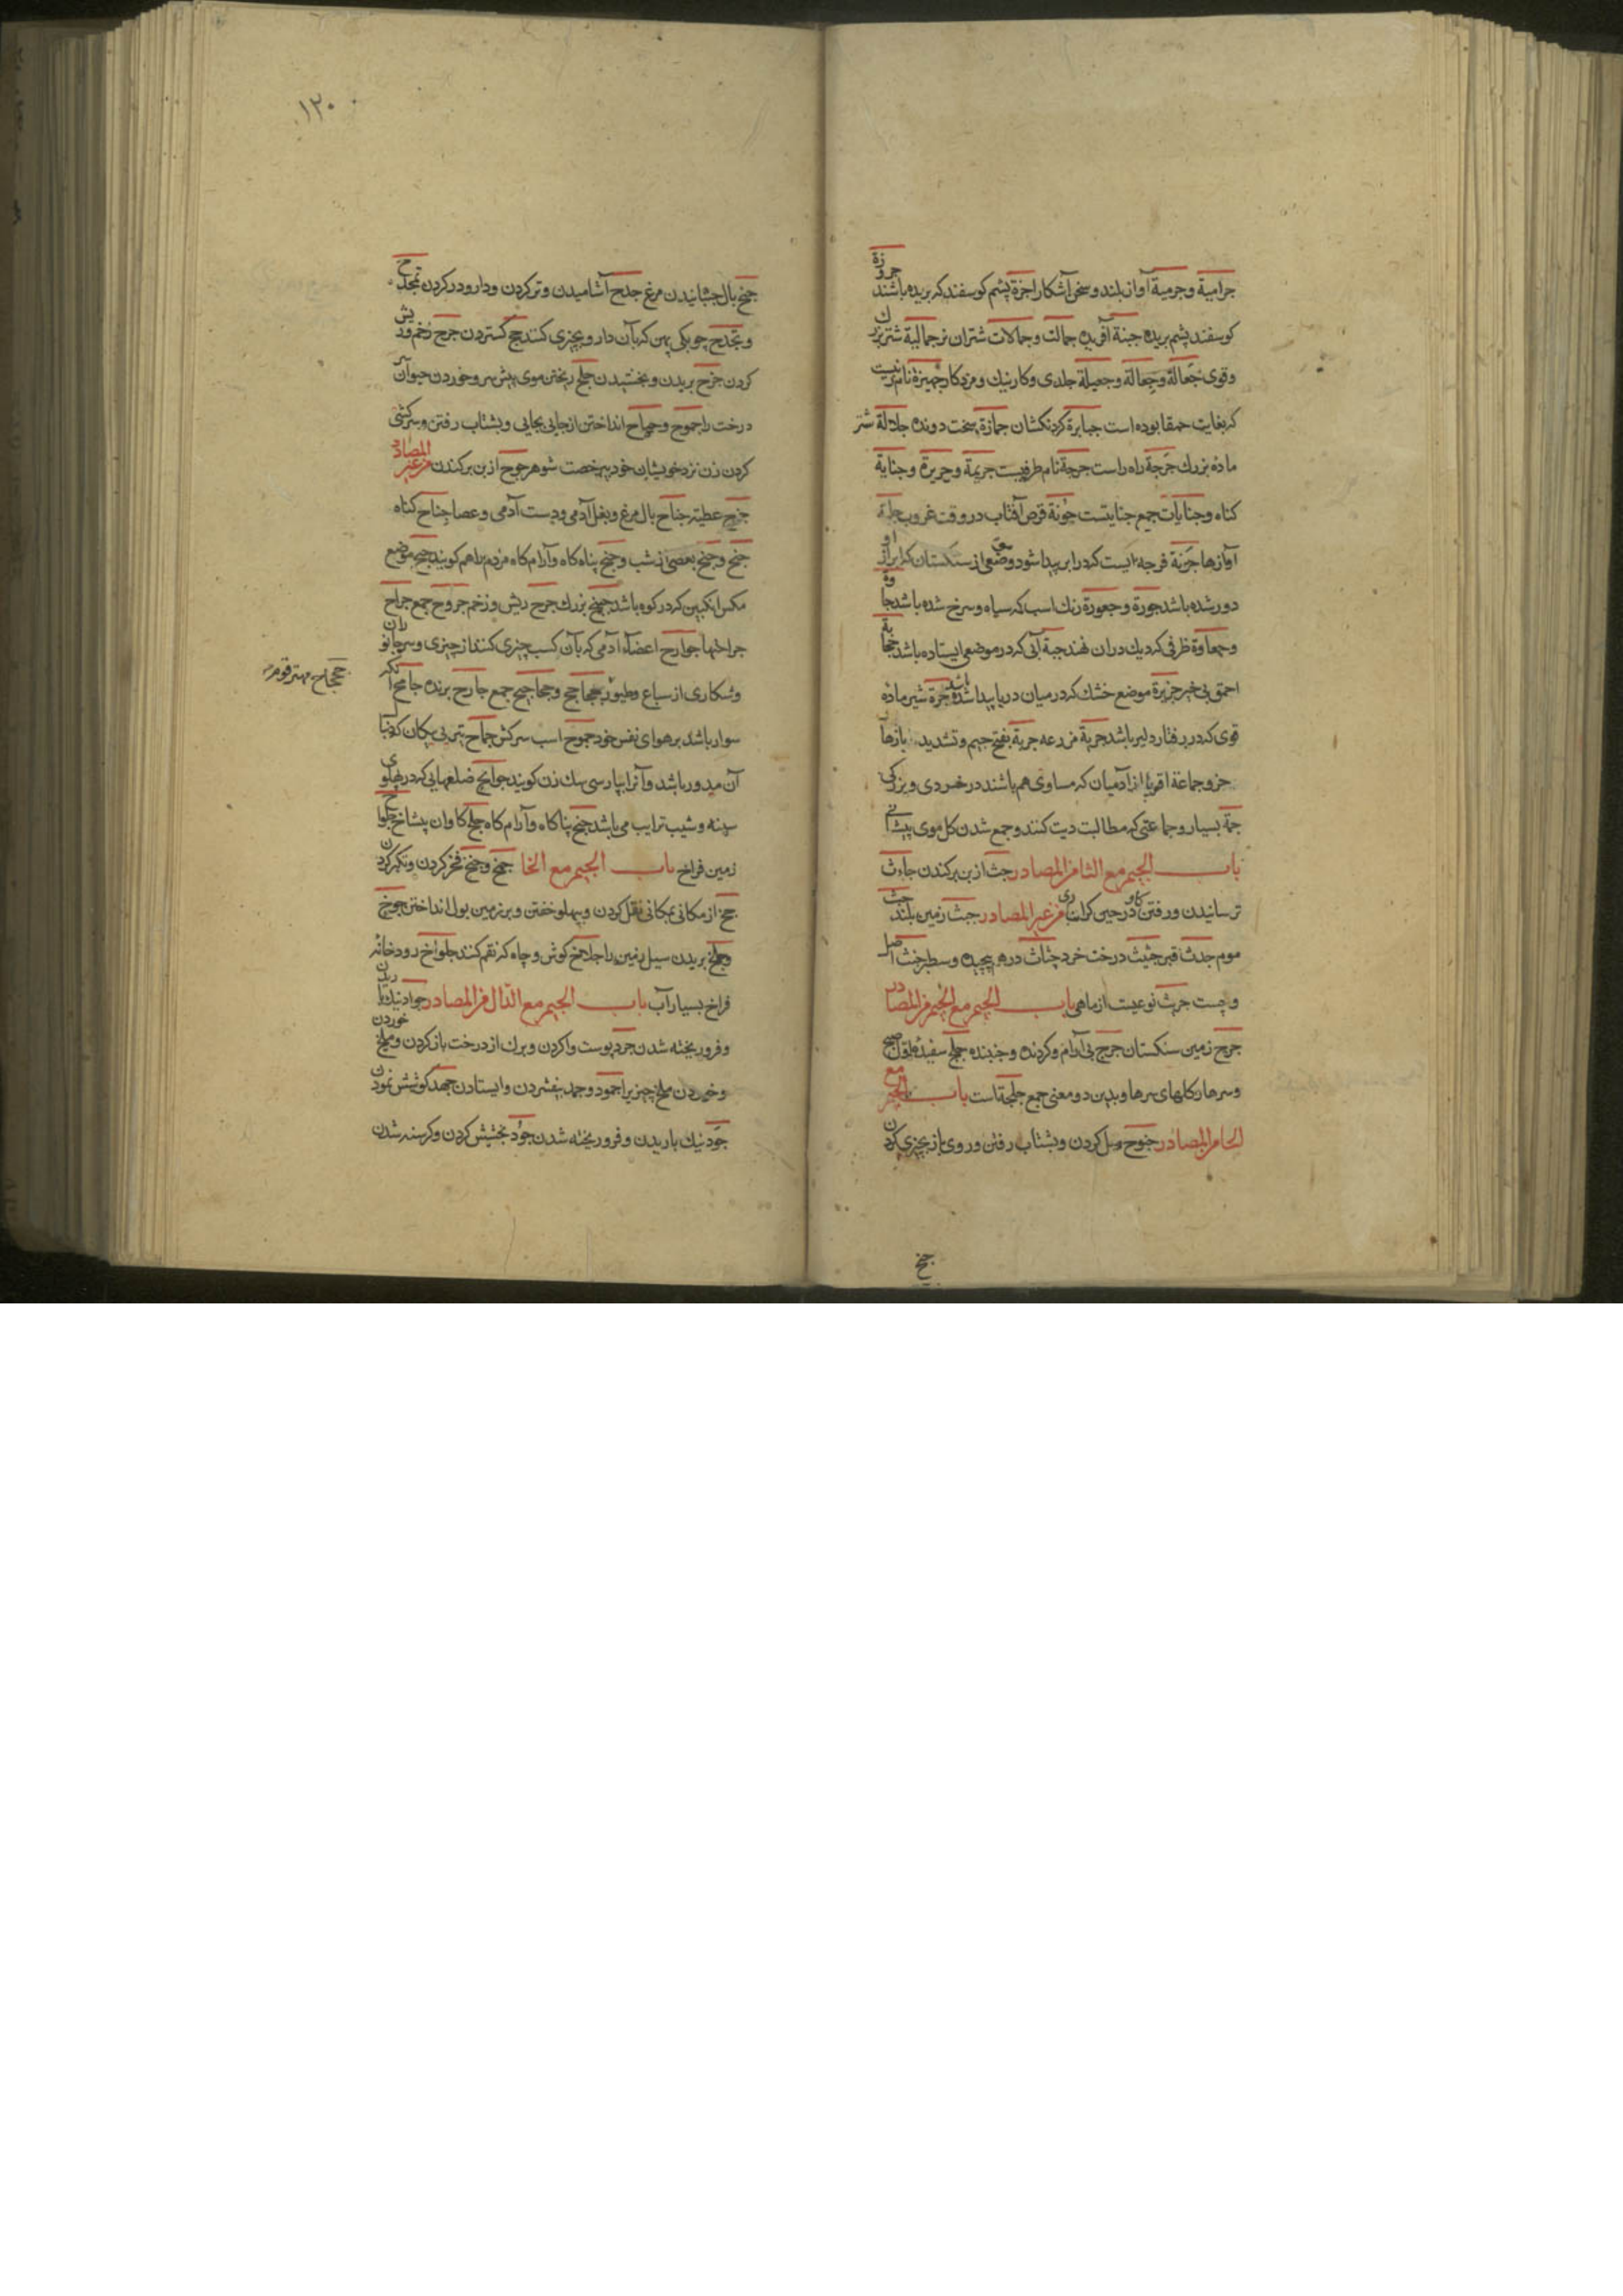 جرامیة وجرمیة آواز بلند وسخن آشکارا جزة پشم کوسفند که بریده باشند جزوزة
کوسفند پشم بریده جبنة آفریده جمالت وجمالات شتران نر جمالیة شتر بزرك
وقوی جعالة وجعالة وجعیلة جلدی وکار نیك ومزد کار جهیزة نام زنیست
که بغایت حمقا بوده است جبابرة کردنکشان جمازة سخت دونده جلالة شتر
ماده بزرك جرجة راه راست جرجة نام ظرفیست جریمة وجریرة وجنایة
کناه وجنایات جمع جنایتست جونة قرص آفتاب در وقت غروب جلبة
آوازها جرنة فرجه ایست که در ابر پیدا شود وضعی از سنکستان که ابر از او
دور شده باشد جورة وجعورة رنك اسب که سیاه وسرخ شده باشد جاوة
وجعاوة ظرفی که دیك در ان نهند جبة آبی که در موضعی ایستاده باشد جخابة
احمق بی خبر جزیرة موضع خشك که در میان دریا پیدا شده باشد جرة شیر ماده
قوی که در رفتار دلیر باشد جربة مزرعه جربة بفتح جیم وتشدید بازها
خر وجماعة اقربا از آدمیان که مساوی هم باشند در خردی وبزرکی
جمة بسیار وجماعتی که مطالبت دیت کنند وجمع شدن کل موی پیشانی
باب الجیم مع الثا من المصادر جث از بن برکندن جاءث
ترسانیدن ورفتن کاو در حین کرانباری من غیر المصادر جبث زمین بلند جث
موم جدث قبر جثیث درخت خرد جثاث درهم پیچیده وسطبر جنث اصل
وچست جریث نوعیست از ماهی باب الجیم مع الجیم من المصادر
جرج زمین سنکستان جرج بی آرام وکردنده وجنبنده جملج سفیده
وسرها وکلهای سرها وبدین دو معنی جمع جلجتاست باب الجیم مع
الحا من المصادر جنوح میل کردن وبشتاب رفتن وروی باز بچیزی کردن
جنح
۱۲۰
جنح بال جنبانیدن مرغ جدح آشامیدن وتر کردن ودارو در کردن مجدح
ومجدح چوبکی پهن که بآن دارو بچیزی کنند جح کستردن جرح زخم وریش
کردن جزح بریدن وبخشیدن جلح ریختن موی پیش سر وخوردن حیوان
درخت را جموح وجماح انداختن از جایی بجایی وبشتاب رفتن وسرکشی
کردن زن نزد خویشان خود بیرخصت شوهر جوح از بن برکندن من غیر المصادر
جزح عطیه جناح بال مرغ وبغل آدمی ودست آدمی وعصا جناح کناه
جنح وجنح بعضی از شب وجنح پناه کاه وآرام کاه مردم را هم کویند جبح موضع
مکس انکبین که در کوه باشد بزرك جرح ریش وزخم جروح جمع جراح
جراحتها جوارح اعضاء آدمی که بآن کسب چیزی کنند از چیزی وسر زانو ران
وشکاری از سباع وطیور جحاجح وجحاجیح جمع جارح برنده جامح آنکه
سوار باشد بر هوای نفس خود جموح اسب سرکش جماح تیر بی پیکان که
آن مدور باشد وآنرا بپارسی سك زن کویند جوانح ضلعهایی که در پهلوی
سینه وشیب ترایب می باشد جنح پناکاه وآرام کاه جلح کاوان بیشاخ جلواح
زمین فراخ باب الجیم مع الخا جمخ وجنخ فخر کردن وتکبر کردن
جخ از مکانی بمکانی نقل کردن وپهلو خفتن وبر زمین بول انداختن جوخ
وجلخ بریدن سیل زمین را جلامخ کوش وچاه که نقم کنند جلواخ رودخانه
فراخ بسیار آب باب الجیم مع الدال من المصادر جواد نیك باریدن
وفرو ریخته شدن جرد پوست واکردن وبرك از درخت باز کردن وملخ خوردن
وخوردن ملخ چیزیرا جمود وجمد بیفشردن وایستادن جهد کوشش نمودن
جود نیك باریدن وفرو ریخته شدن جود بخشیش کردن وکرسنه شدن
جحجاح مهتر قوم